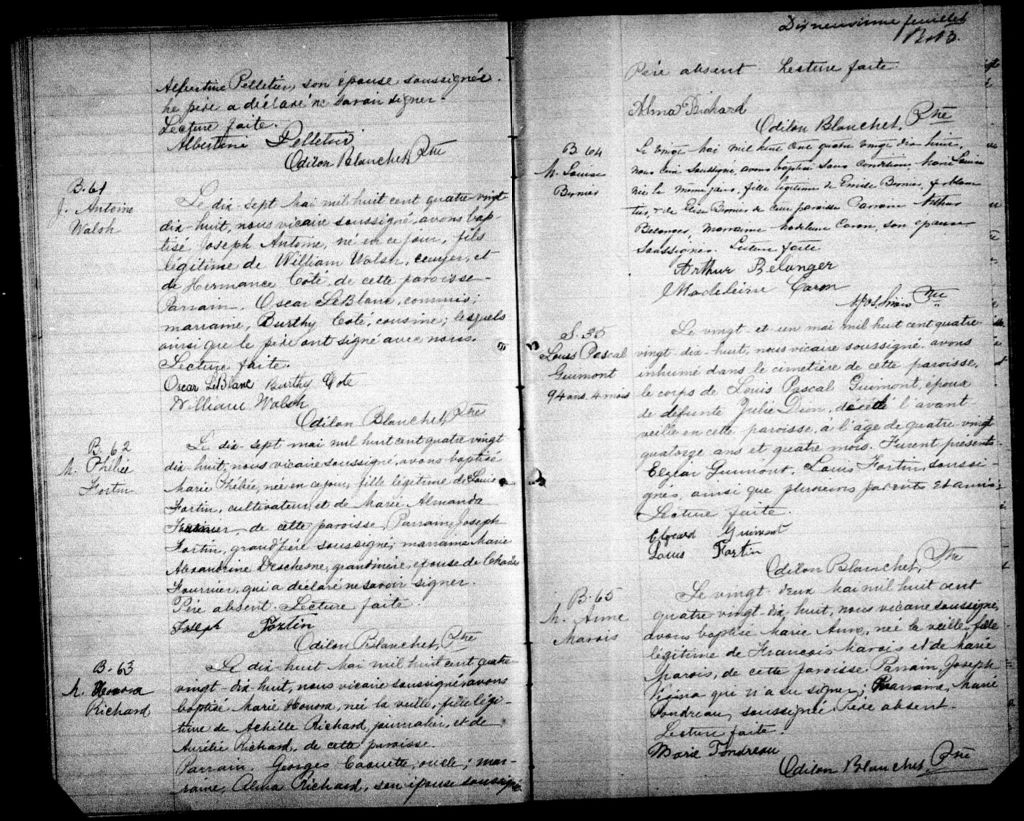 Albertine Pelletier, son épouse soussignée.
Le père a déclaré ne savoir signer.
Lecture faite.
Albertine Pelletier
Odilon Blanchet, Ptre
B-61
J. Antoine
Walsh
Le dix-sept mai mil huit cent quatre vingt
dix-huit, nous vicaire soussigné, avons bap
tisé Joseph Antoine, né en ce jour, fils
légitime de William Walsh, et
de Hermance Coté, de cette paroisse.
Parrain, Oscar LeBlanc, commis;
marraine, Burthy Coté, cousine; lesquels
ainsi que le père ont signé avec nous.
Lecture faite.
Oscar LeBlanc Burthy Cote
William Walsh
Odilon Blanchet, Ptre
B-62
M. Phébée
Fortin
Le dix-sept mai mil huit cent quatre vingt
dix-huit, nous vicaire soussigné, avons baptisé
Marie Phébée, née en ce jour, fille légitime de Louis
Fortin, cultivateur et de Marie Almanda
Fournier, de cette paroisse, Parrain, Joseph
Fortin, grand'père soussigné; marraine Marie
Alexandrine Deschesne, grand'mère, épouse de
Fournier, qui a déclaré ne savoir signer.
Père absent. Lecture faite.
Joseph Fortin
Odilon Blanchet, Ptre
B-63
M. Honora
Richard
Le dix-huit Mai mil huit cent quatre
vingt-dix-huit, nous vicaire soussigné, avons
baptisé Marie Honora, née la veille, fille légi
time de Achille Richard, journalier, et de
Aurélie Richard, de cette paroisse.
Parrain, Georges Caouette, oncle; mar
raine, Alma Richard, son épouse soussignée
Dix neuvième feuillet
Père absent Lecture faite
Alma Richard
Odilon Blanchet, Ptre
B 64
M. Louise
Bernier
Le vingt Mai mil huit cent quatre vingt dix huit,
nous soussigné, avons baptisé sous condition, Marie Louise
née le même jour, fille légitime de Bernier, ferblan
tier, & de Bernier de cette paroisse Parrain Arthur
Belanger, marraine Madeleine Caron, son épouse
soussignés. Lecture faite
Arthur Belanger
Madeleine Caron
Ptre
S. 35
Louis Pascal
Guimont
94 ans. 4 mois
Le vingt et un mai mil huit cent quatre
vingt-dix-huit, nous vicaire soussigné avons
inhumé dans le cimetière de cette paroisse,
le corps de Louis Pascal Guimont, époux
de defunte Julie Dion, décédé l'avant
veille en cette paroisse, à l'âge de quatre vingt
quatorze ans et quatre mois. Furent présents
Elzéar Guimont, Louis Fortin, soussi-
gnés, ainsi que plusieurs parents et amis.
Lecture faite.
Guimont
Louis Fortin
Odilon Blanchet, Ptre
B-65
M. Anne
Marois
Le vingt deux Mai mil huit cent
quatre vingt dix, huit, nous vicaire soussigné,
avons baptisé Marie Anne, née la veille, fille
légitime de François Marois et de Marie
Marois, de cette paroisse Parrain, Joseph
qui n'a su signer; Marraine, Marie
Fondreau, soussignée. Père absent.
Lecture faite.
Marie Fondreau
Odilon Blanchet, Ptre